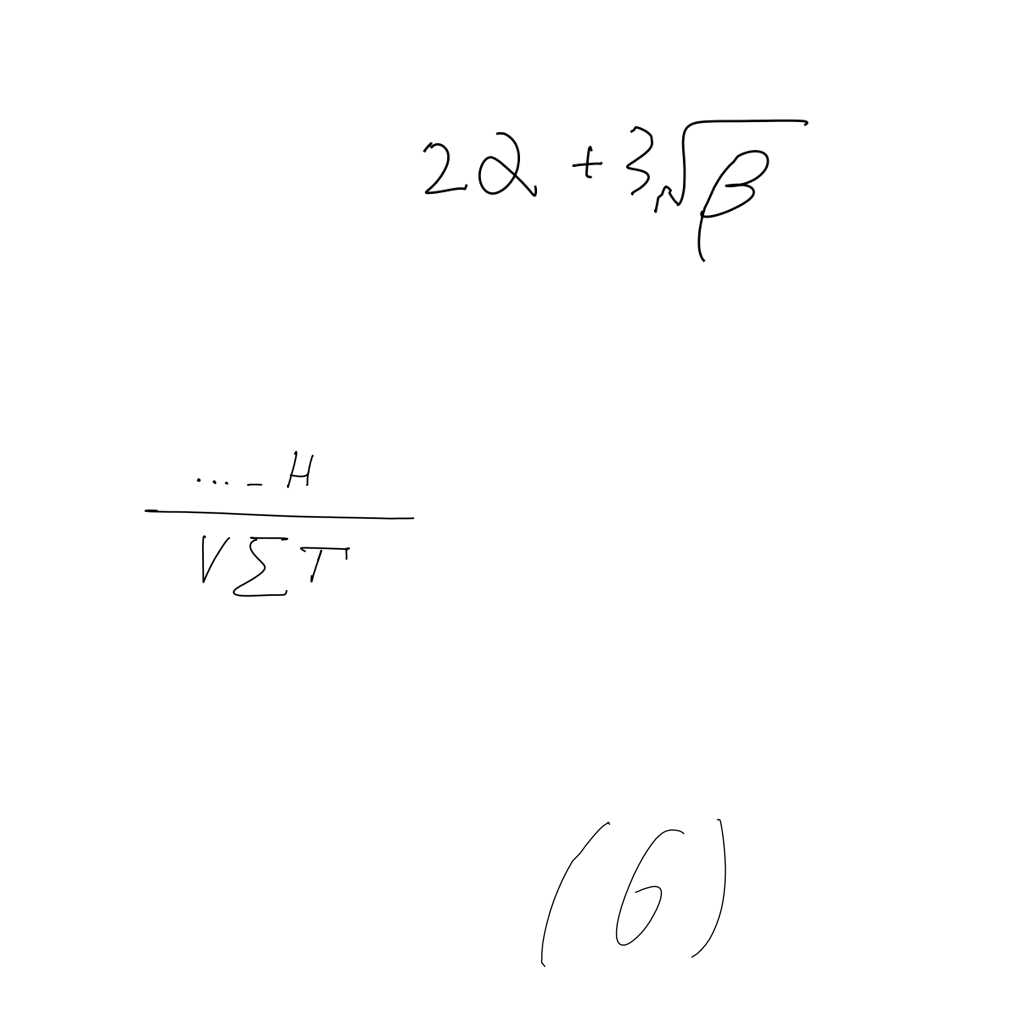 2α + 3√β
... - H
V Σ T
(6)